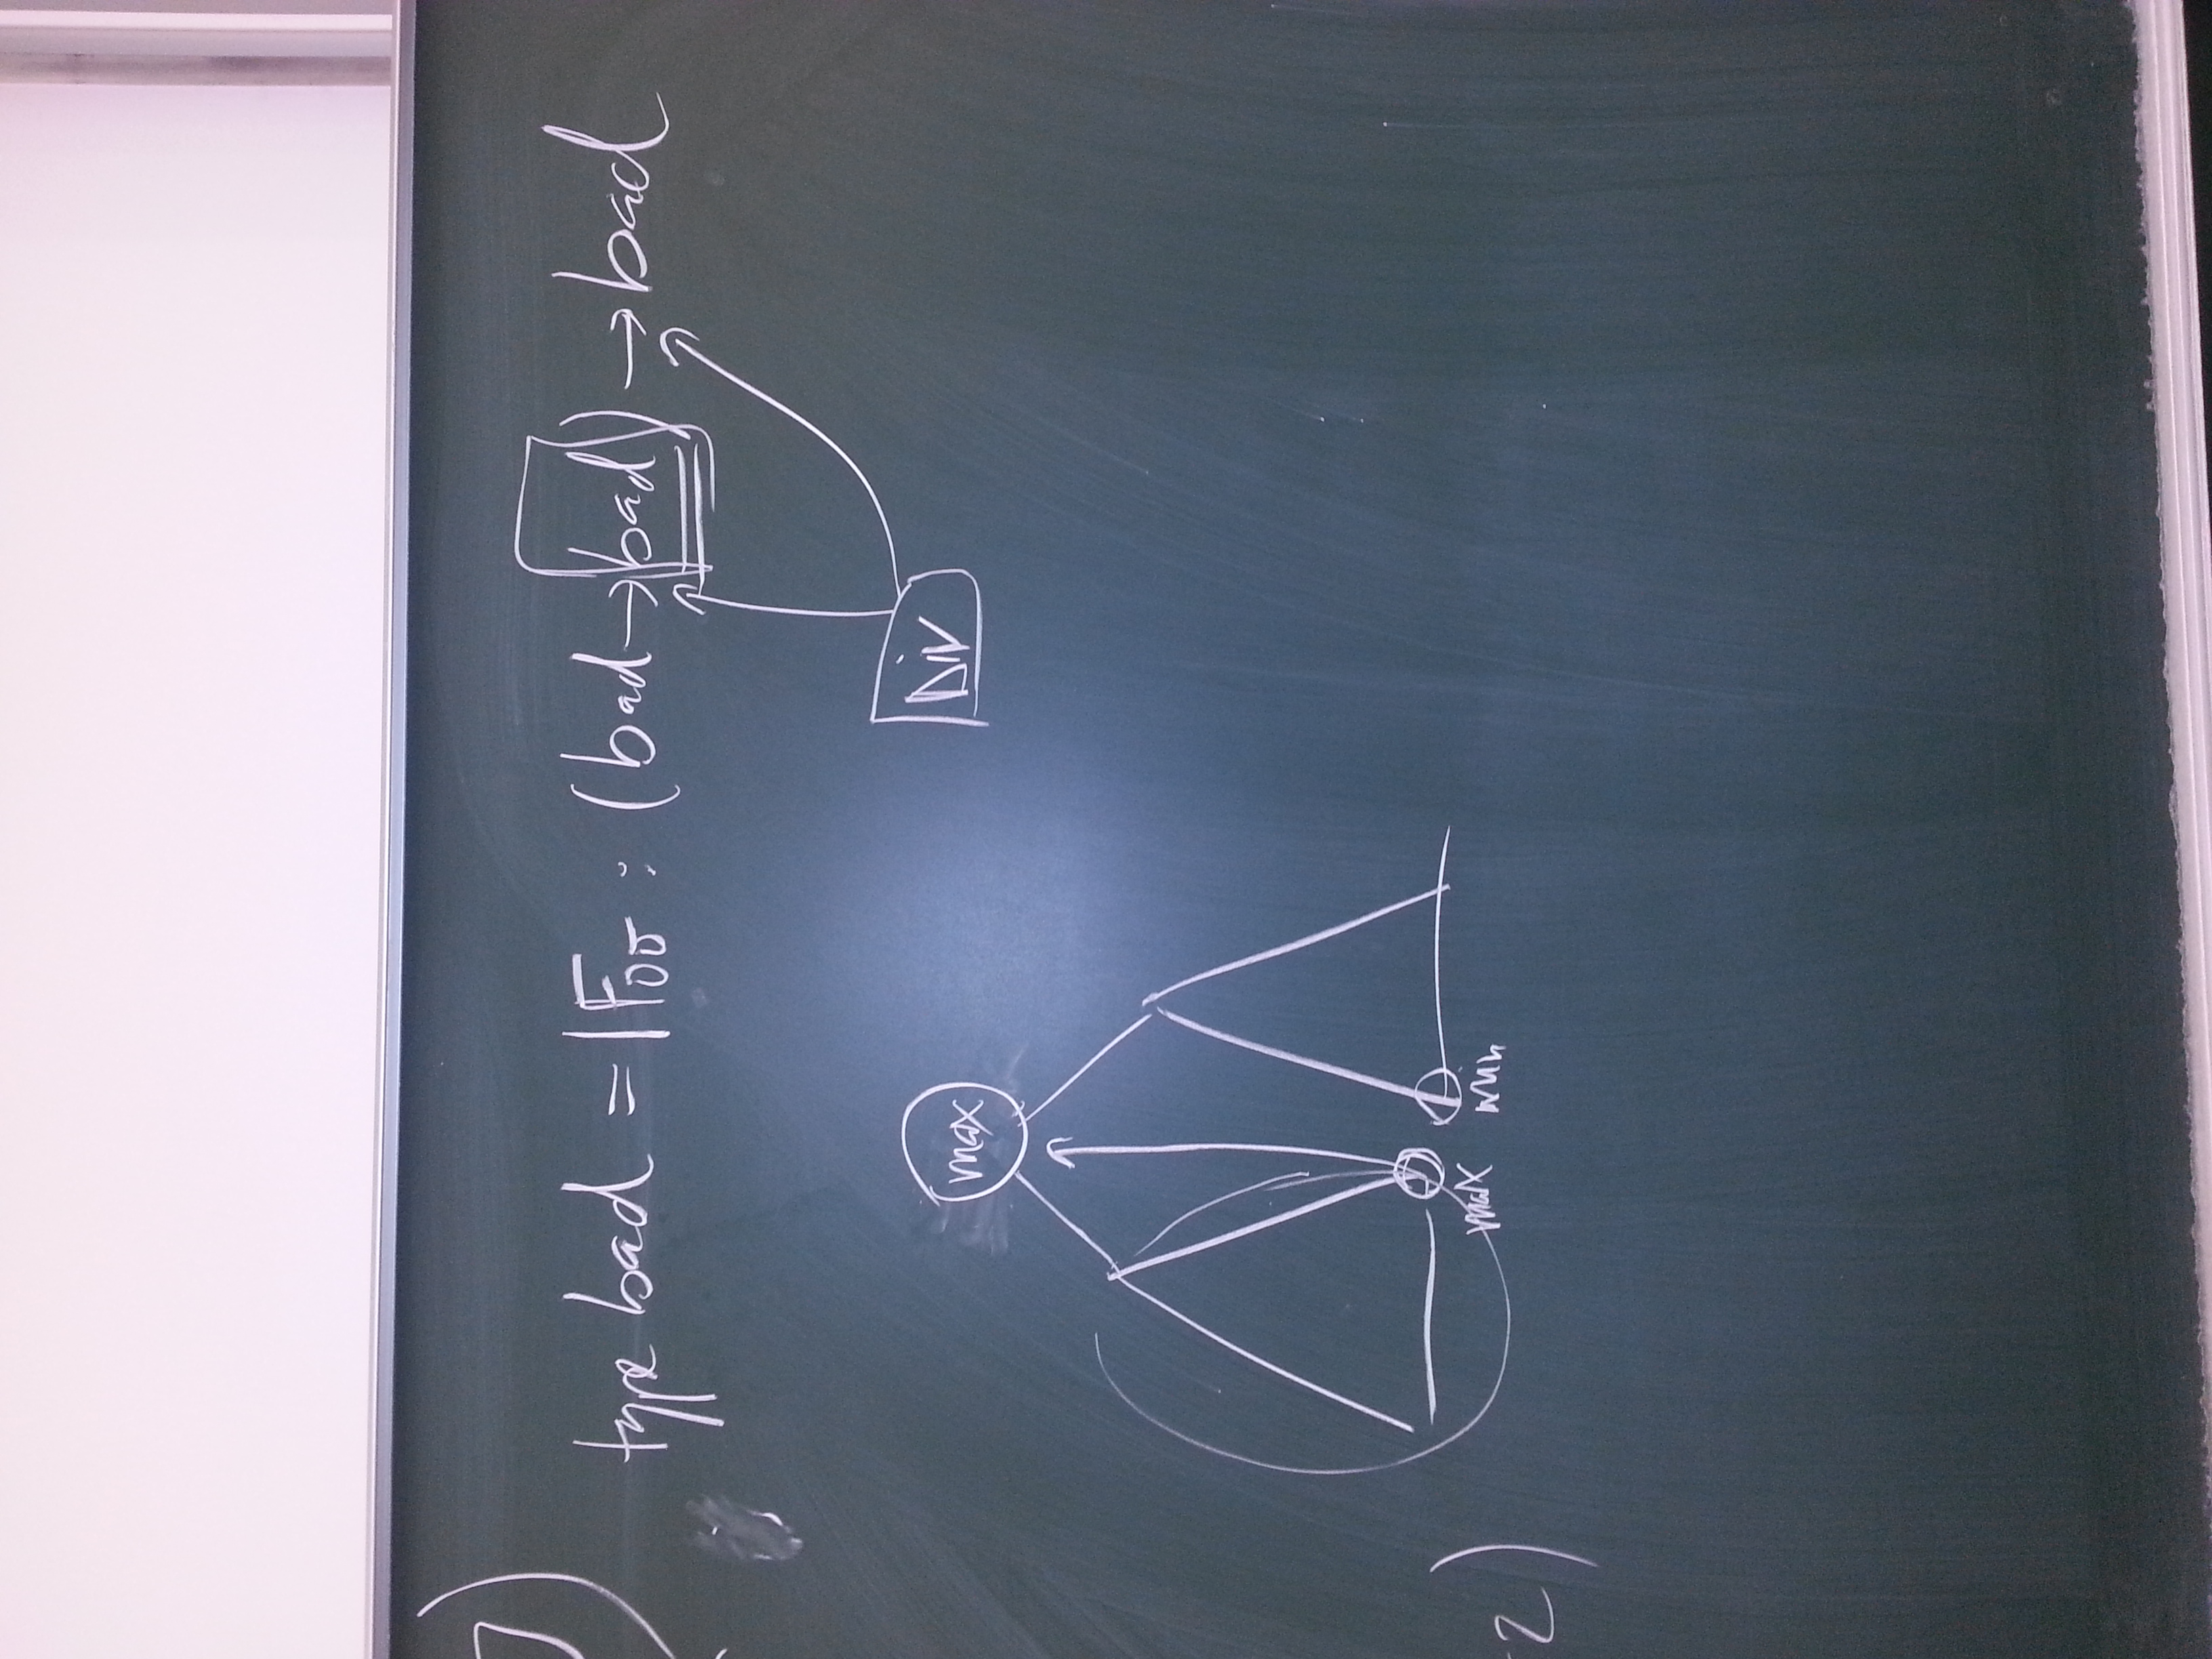 type bad = | Foo : (bad → bad) → bad
Div
max
max min
-2)